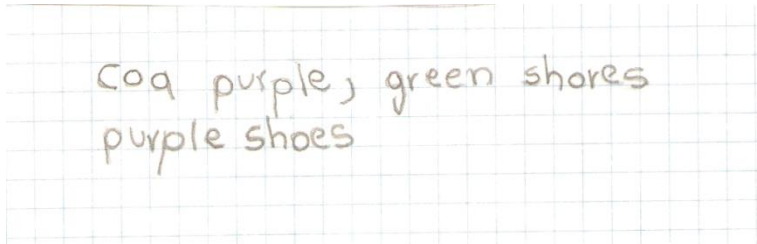 Coq purple, green shores
purple shoes